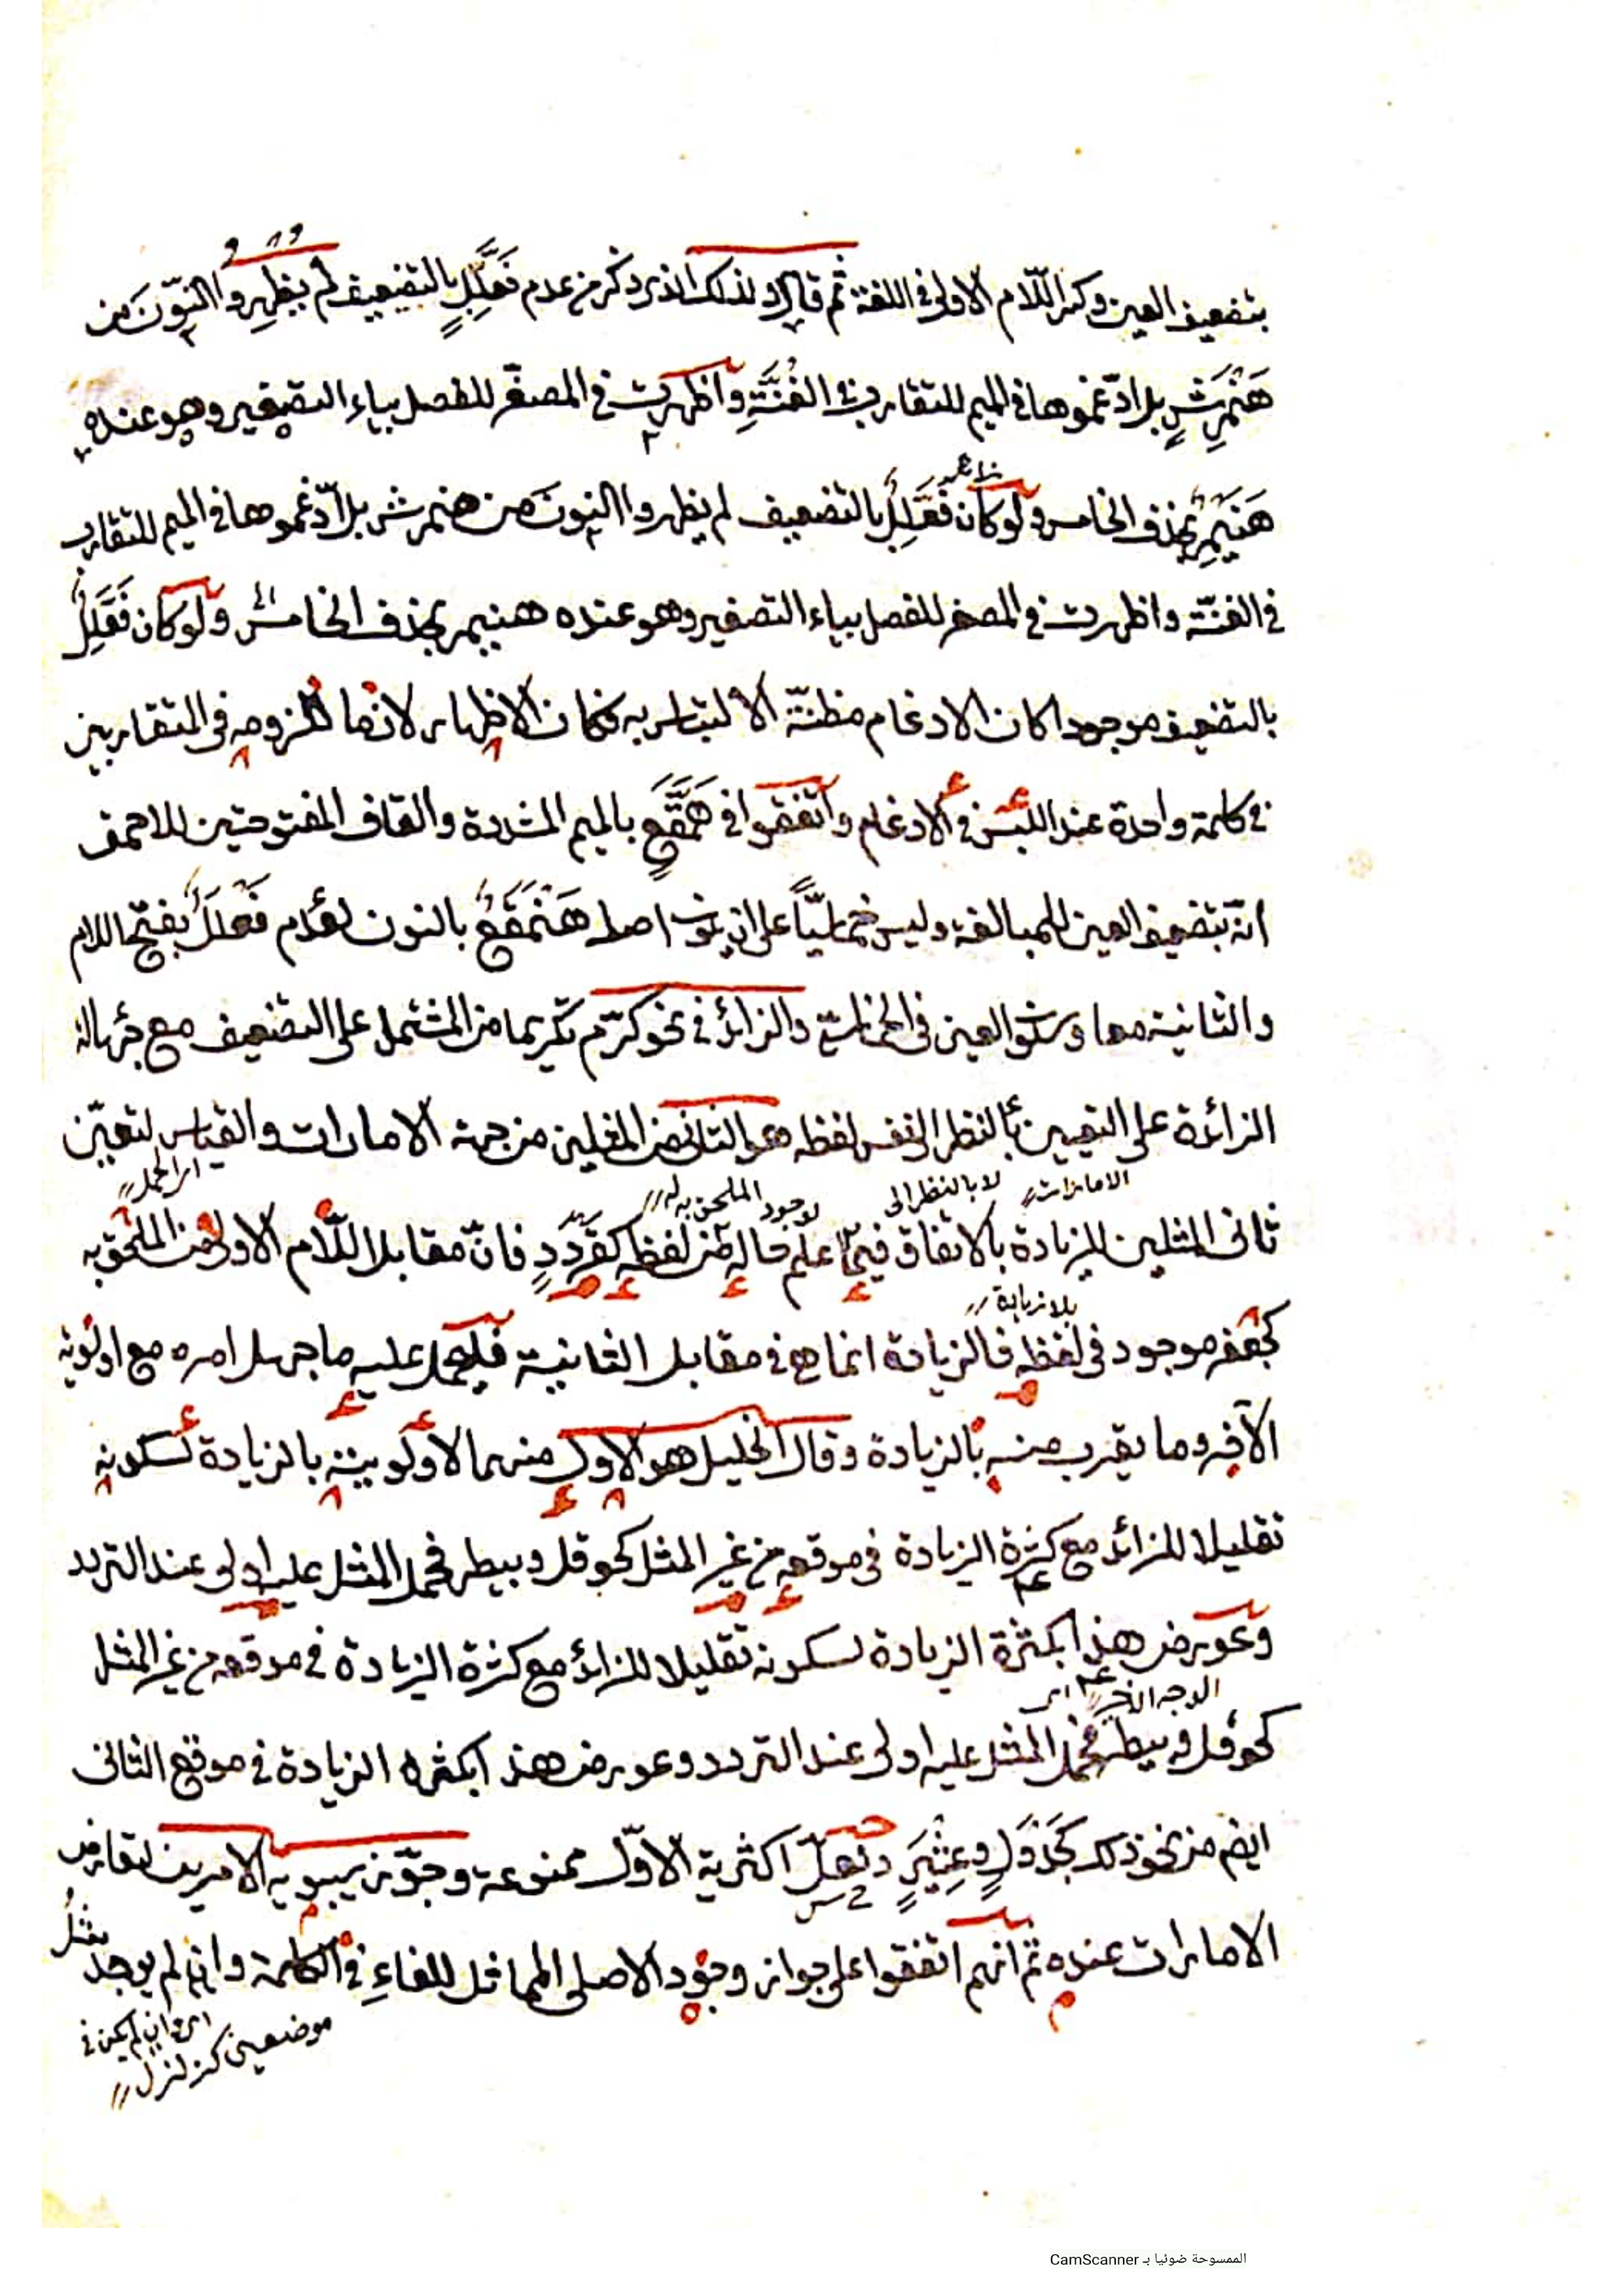 بتضعيف العين وكسر اللّام الاولى في اللغة ثم قال ولذلك الذى ذكر من عدم فَعَّلِلٍ بالتضعيف لم يظهِروا النّونَ من
هَنْمَرِشٍ بل ادّغموها فى الميم للتقارب فى الغُنَّةِ واظهرت فى المصغّر للفصل بياء التصغير وهو عنده
هُنَيْمِرٌ بحذف الخامس ولو كان فَعَّلِلٌ بالتضعيف لم يظهروا النونَ من هنمرش بل ادّغموها فى الميم للتقارب
فى الغنّة واظهرت فى المصغر للفصل بياء التصغير وهو عنده هنيمر بحذف الخامس ولو كان فَعَّلِلٌ
بالتضعيف موجودا كان الادغام مظنّة الالتباس به فكان الاظهار لازما للزومه فى المتقاربين
فى كلمة واحدة عند اللبس فى الادغام واتفقوا فى هَمَّقَعٍ بالميم المشددة والقاف المفتوحتين للاحمق
انّه بتضعيف العين للمبالغة وليس خماسيّاً على ان يكون اصله هَنْمَقَعٌ بالنون لعدم فَعْلَلَلٌ بفتح اللام
والثانية معا وسكون العين فى الخماسىّ والزائد فى نحو كرّم تكريما من المشتمل على التضعيف مع جهالة
الزائدة على التعيين بالنظر الى نفس لفظه هو الثانى من المثلين من جهة الامارات والقياس لتعيّن
الامارات // لا بالنظر الى لوجود الملحق به له // اى الحمل //
ثانى المثلين للزيادة بالاتفاق فيما علم حاله من لفظه كقَرْدَدٍ فانّ مقابل اللّام الاولى من الملحق به
بلا زيادة //
كجعفر موجود فى لفظه فالزيادة انما هى فى مقابل الثانية فليحمل عليه ما جهل امره مع اولويّة
الآخر وما يقرب منه بالزيادة وقال الخليل هو الاول منهما لأولويته بالزيادة لسكونه
تقليلا للزائد مع كثرة الزيادة فى موقعه من غير المثل كحوقل وبيطر فحمل المثل عليه اولى عند التردد
وعورض هذا بكثرة الزيادة لسكونه تقليلا للزائد مع كثرة الزيادة فى موقعه من غير المثل
الوجه الاخر // اى
كحوقل وبيطر فحمل المثل عليه اولى عند التردد وعورض هذا بكثرة الزيادة فى موقع الثانى
ايضم من نحو ذلك كجَدْوَلٍ وعِثْيَرٍ ولعلّ اكثرية الاوّل ممنوعة وجوّز سيبويه الامرين لتعارض
الامارات عنده ثم انهم اتفقوا على جواز وجود الاصلى المماثل للفاءِ فى الكلمة وان لم يوجد مثلُ
اى وان لم يكن فى
موضعين كزلزل //
الممسوحة ضوئيا بـ CamScanner